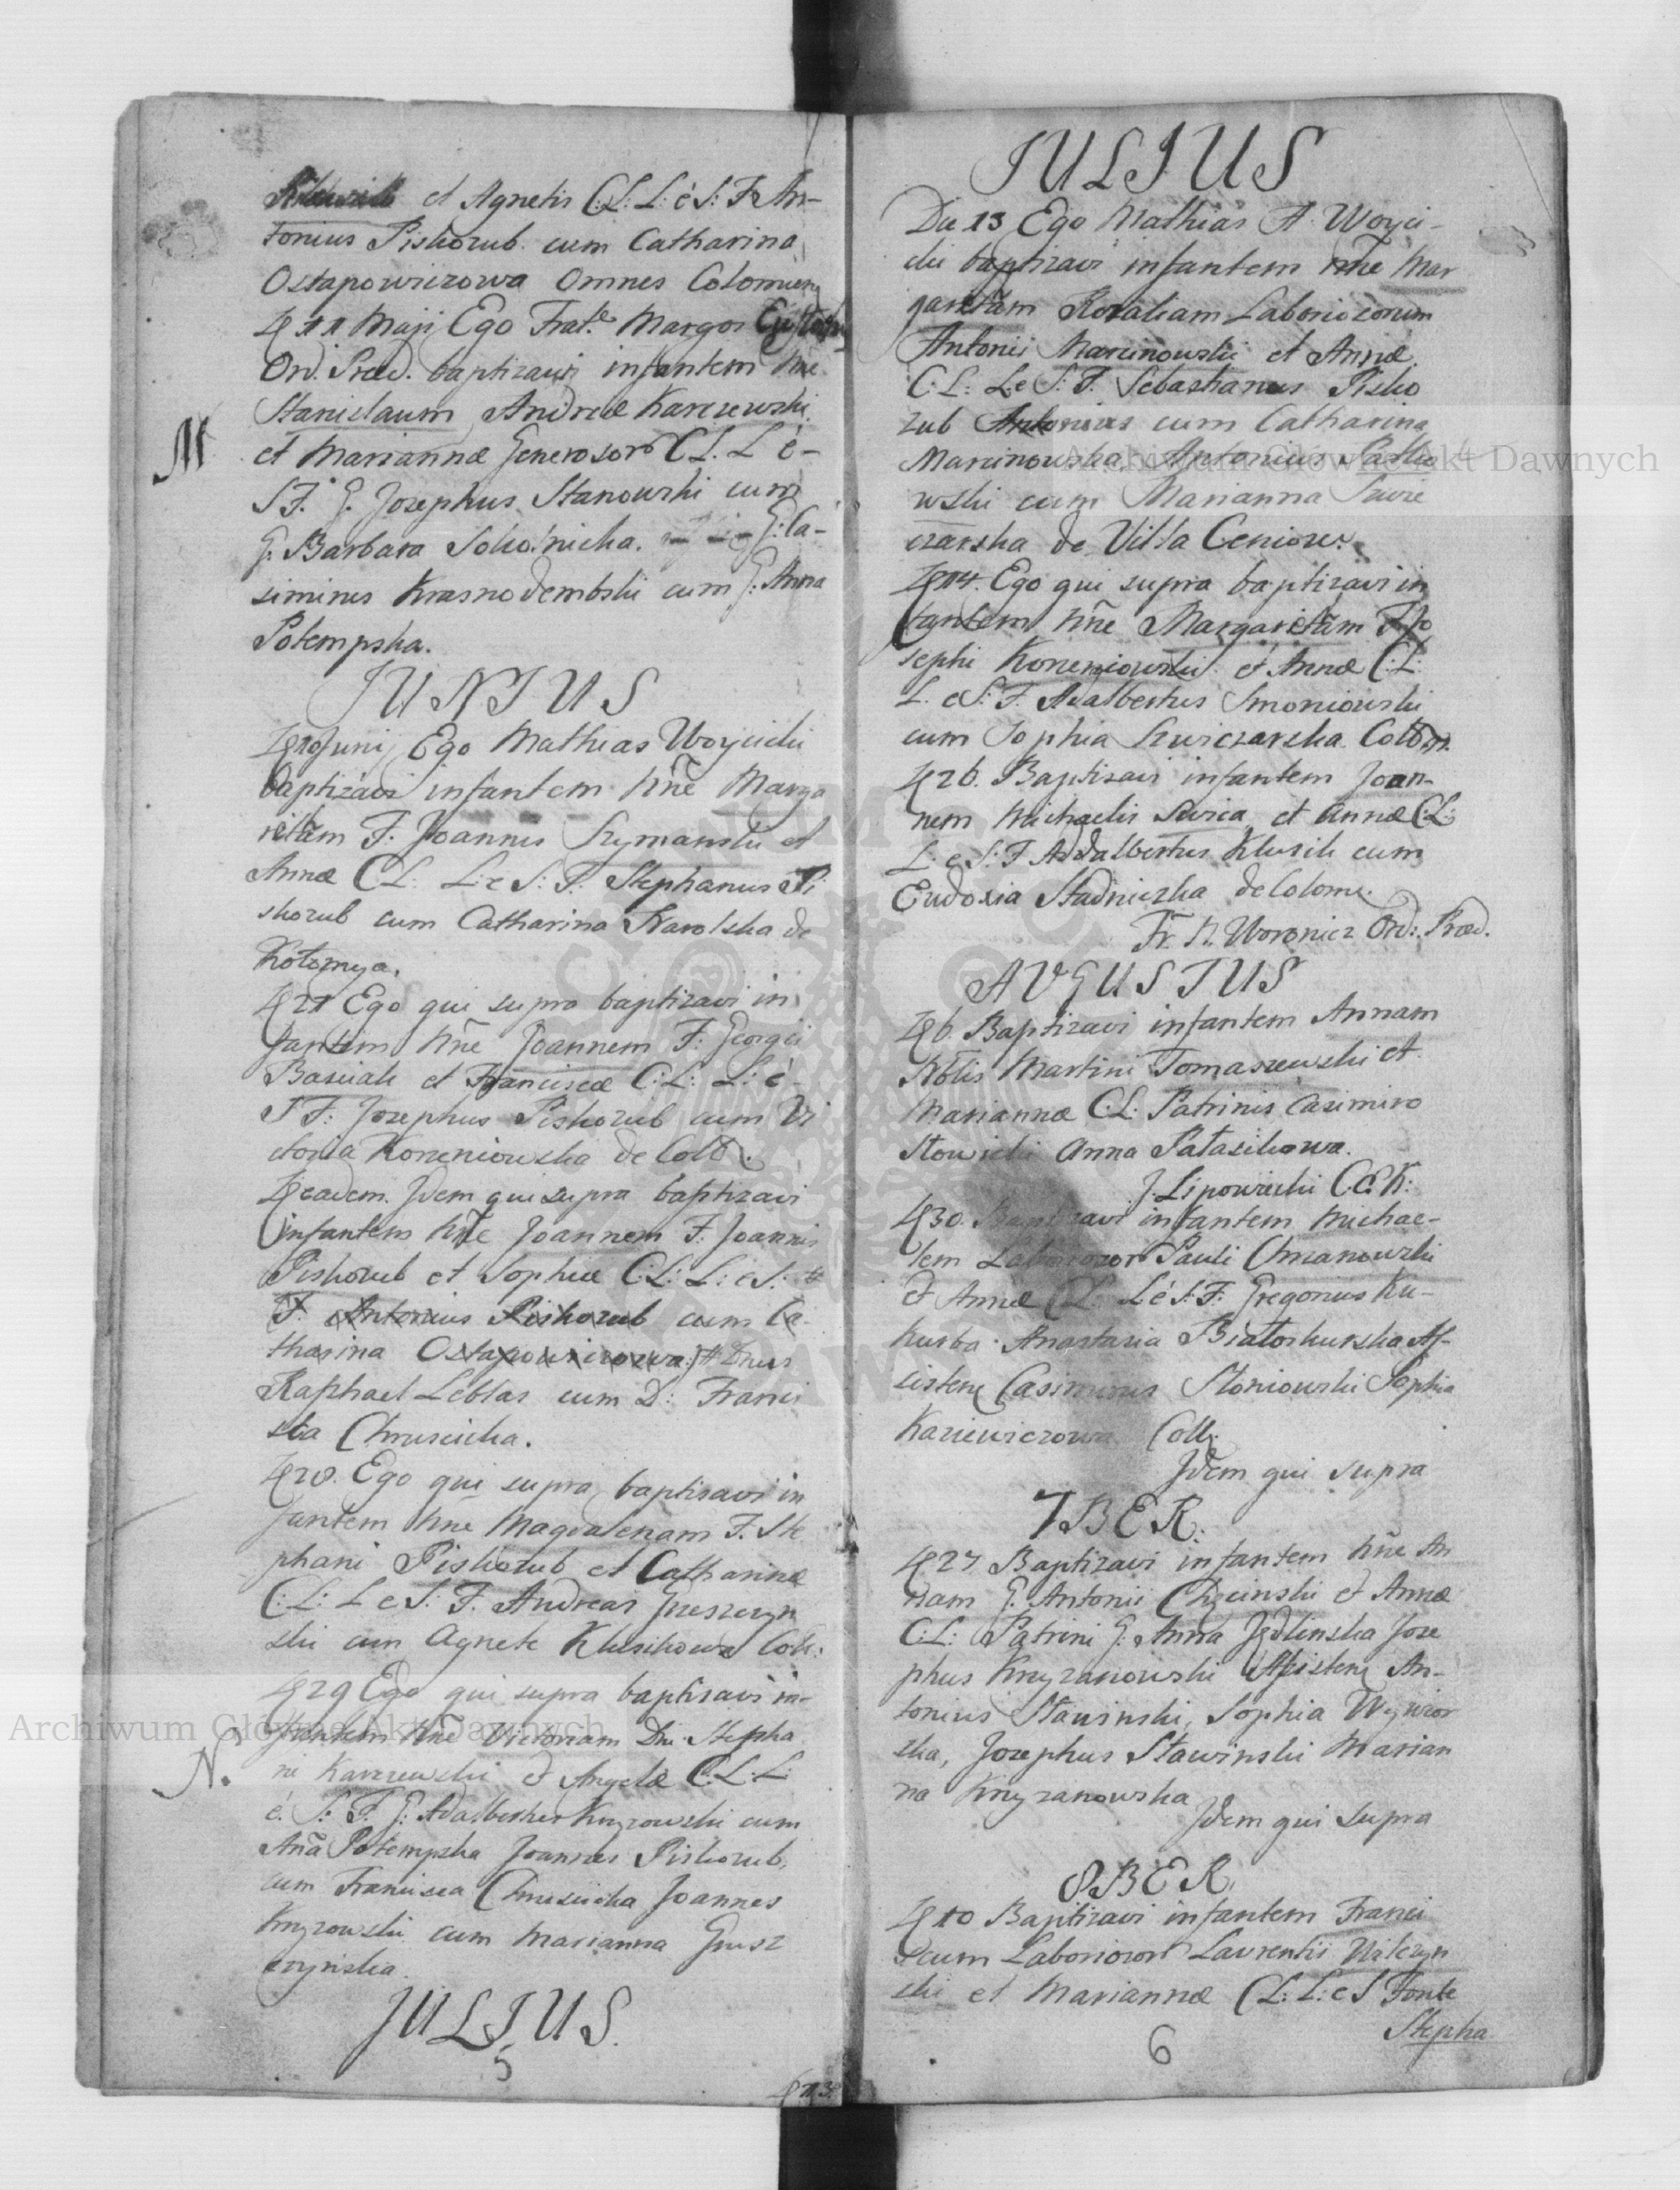 et Agnetis C:L: L: é S: F. An-
tonius Piskozub cum Catharina
Ostapowiczowa Omnes Colomien
11 Maji Ego Frat.
Ord. Præd. baptizavi infantem nne
Stanislaum Andreæ Karczewski
M et Mariannæ Generosor CL. L é
S F. G. Josephus Stanowski cum
G. Barbara G: Ca-
simirus Krasnodembski cum G: Anna
Potempska.
JUNIUS
Juni Ego Mathias Woycicki
baptizavi infantem nne Marga
ritam F. Joannis Szymanski et
Annæ CL: L: e S: F. Stephanus Pi
skozub cum Catharina Karolska de
Kołomya.
21 Ego qui supra baptizavi in
fantem nne Joannem F: Georgii
et Franciscæ C:L: L: é
S F: Josephus Piskozub cum Vi
ctoria Korzeniowska de Colo.
eadem. Idem qui supra baptizavi
infantem nne Joannem F. Joannis
Piskozub et Sophiæ C:L: L: e S: #
F. Antonius Piskozub cum Ca
tharina Ostapowiczowa # Dnus
Raphael Leblas cum D: Franci
ska Chruscicka.
28. Ego qui supra baptisavi in
fantem nne Magdalenam F. Ste
phani Piskozub et Catharinæ
C:L: L e S: F. Andreas Greszczyn
ski cum Agnete Klusikowa Colo:
29 Ego qui supra baptisavi in-
fantem nne Victoriam Dni Stepha
N. ni Karczewski et Angelæ C:L: L:
é. S: F. G: Adalbertus Knyzowski cum
Anā Potempska Joannes Piskozub,
cum Francisca Chruscicka Joannes
Knyzowski cum Marianna Grusz
czynska
JULIUS.
5
13
JULIUS
Die 13 Ego Mathias A. Woyci-
cki baptizavi infantem nne Mar
garetam Rozaliam Laboriozorum
Antonii Marcinowski et Annæ.
C: L: L: e S: F. Sebastianus Pisko
zub Antonius cum Catharina
Marcinowska. Antonius
wski cum Marianna Szwie
czarska de Villa
14. Ego qui supra baptizavi in
fantem nne Margaritam F Jo
sephi Korzeniowski et Annæ C:L:
L. e S: F. Adalbertus Smoniowski
cum Sophia Szwiczarska Colom.
26. Baptisavi infantem Joan-
nem Michaelis Swica et Annæ C:L:
L: e S: F Adalbertus Klusik cum
Eudoxia Stadniczka de Colome.
Fr. N. Woronicz Ord: Præd.
AVGUSTUS
6. Baptizavi infantem Annam
Nblis Martini Tomaszewski et
Mariannæ C:L: Patrinis Casimiro
Anna Patasikowa.
J. Lipowiecki C.C.K:
30. Baptizavi infantem Michae-
lem Laboriozor Pauli Chmanowski
et Annæ CL: L é S: F: Gregorius Ku-
kurba Anastazia Białoskurska As-
sisten Casimirus Słoniowski Sophia
Kaziewiczowa Coll:
Idem qui supra
7BER.
27 Baptizavi infantem nne An
nam G. Antonii et Annæ
C:L: Patrini G: Anna Jędlinska Jose
phus Knyzanowski Assisten An-
tonius Stawinski, Sophia
ska, Josephus Stawinski Marian
na Knyzanowska
Idem qui supra
8BER.
10 Baptizavi infantem Franci
scum Laboriozor Laurentii Wilczyn
ski et Mariannæ CL: L: e S Fonte
Stepha
6
Archiwum Główne Akt Dawnych
Archiwum Główne Akt Dawnych